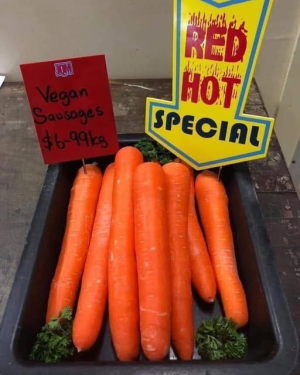 Vegan
Sausages
$6-99kg
RED
HOT
SPECIAL